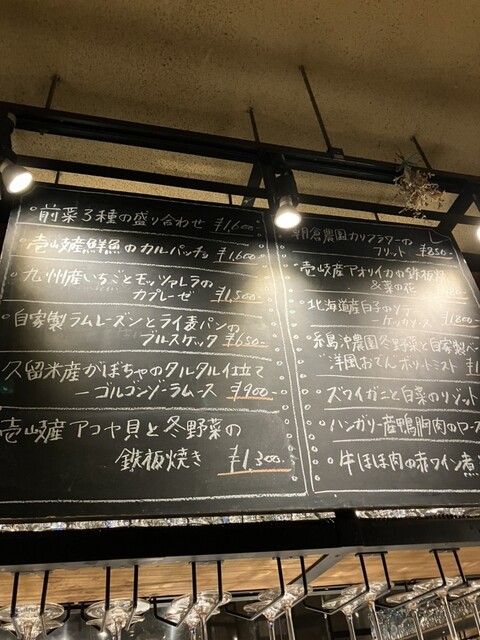 前菜3種の盛り合わせ ¥1,600-
壱岐産鮮魚のカルパッチョ ¥1,600-
九州産いちごとモッツァレラの
カプレーゼ ¥1,500-
自家製ラムレーズンとライ麦パンの
ブルスケッタ ¥650-
久留米産かぼちゃのタルタル仕立て
ーゴルゴンゾーラムース ¥900-
壱岐産アコヤ貝と冬野菜の
鉄板焼き ¥1,300-
朝倉農園カリフラワーの
フリット ¥850-
壱岐産アオリイカの鉄板焼
&菜の花
北海道産白子のソテー
ーケッカソース ¥1,800-
糸島沖農園冬野菜と自家製ベー
"洋風おでん"ボリートミスト ¥1
ズワイガニと白菜のリゾット
ハンガリー産鴨胸肉のロース
牛ほほ肉の赤ワイン煮